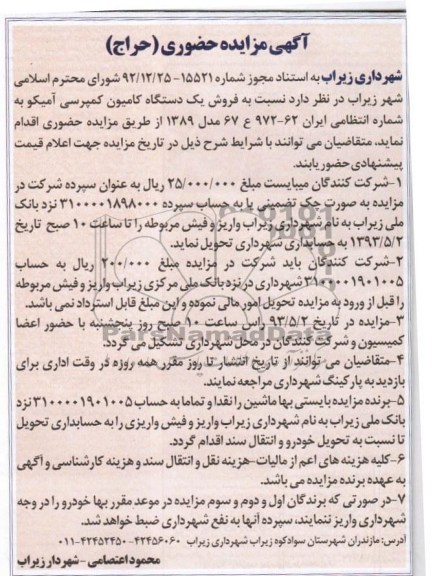 آگهی مزایده حضوری (حراج)
شهرداری زیراب به استناد مجوز شماره ۱۵۵۲۱- ۹۲/۱۲/۲۵ شورای محترم اسلامی
شهر زیراب در نظر دارد نسبت به فروش یک دستگاه کامیون کمپرسی آمیکو به
شماره انتظامی ایران ۶۲-۹۷۲ ع ۶۷ مدل ۱۳۸۹ از طریق مزایده حضوری اقدام
نماید، متقاضیان می توانند با شرایط شرح ذیل در تاریخ مزایده جهت اعلام قیمت
پیشنهادی حضور یابند.
۱-شرکت کنندگان میبایست مبلغ ۲۵/۰۰۰/۰۰۰ ریال به عنوان سپرده شرکت در
مزایده به صورت چک تضمینی یا به حساب سپرده ۳۱۰۰۰۰۱۸۹۸۰۰۰ نزد بانک
ملی زیراب به نام شهرداری زیراب واریز و فیش مربوطه را تا ساعت ۱۰ صبح تاریخ
۱۳۹۳/۵/۲ به حسابداری شهرداری تحویل نماید.
۲-شرکت کنندگان باید شرکت در مزایده مبلغ ۲۰۰/۰۰۰ ریال به حساب
۳۱۰۰۰۰۱۹۰۱۰۰۵ شهرداری در نزد بانک ملی مرکزی زیراب واریز و فیش مربوطه
را قبل از ورود به مزایده تحویل امور مالی نموده و این مبلغ قابل استرداد نمی باشد.
۳-مزایده در تاریخ ۹۳/۵/۲ راس ساعت ۱۰ صبح روز پنجشنبه با حضور اعضا
کمیسیون و شرکت کنندگان در محل شهرداری تشکیل می گردد.
۴-متقاضیان می توانند از تاریخ انتشار تا روز مقرر همه روزه در وقت اداری برای
بازدید به پارکینگ شهرداری مراجعه نمایند.
۵-برنده مزایده بایستی بها ماشین را نقدا و تماما به حساب ۳۱۰۰۰۰۱۹۰۱۰۰۵ نزد
بانک ملی زیراب به نام شهرداری زیراب واریز و فیش واریزی را به حسابداری تحویل
تا نسبت به تحویل خودرو و انتقال سند اقدام گردد.
۶-کلیه هزینه های اعم از مالیات-هزینه نقل و انتقال سند و هزینه کارشناسی و آگهی
به عهده برنده مزایده می باشد.
۷-در صورتی که برندگان اول و دوم و سوم مزایده در موعد مقرر بها خودرو را در وجه
شهرداری واریز ننمایند، سپرده آنها به نفع شهرداری ضبط خواهد شد.
آدرس: مازندران شهرستان سوادکوه زیراب شهرداری زیراب ۴۲۴۵۶۰۶۰-۴۲۴۵۲۴۵۰-۰۱۱
محمود اعتصامی -شهردار زیراب